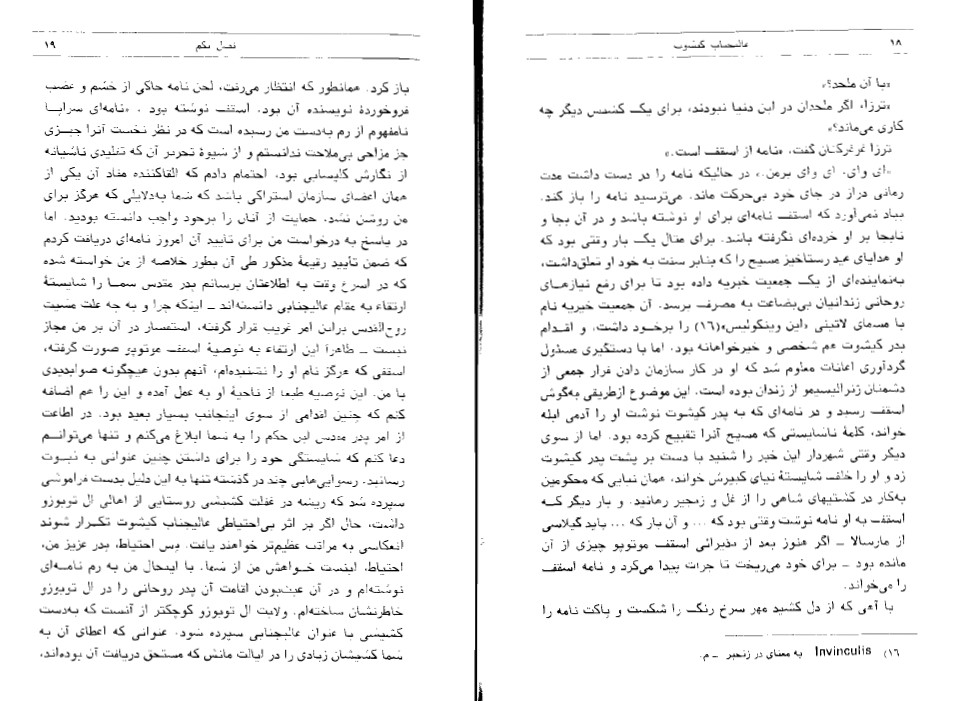 ۱۸ عالیجناب کیشوت
«با آن ملحد؟»
«ترزا، اگر ملحدان در این دنیا نبودند، برای یک کشیش دیگر چه
کاری می‌ماند؟»
ترزا غرغرکنان گفت، «نامه از اسقف است.»
«ای وای، ای وای برمن.» در حالیکه نامه را در دست داشت مدت
زمانی دراز در جای خود بی‌حرکت ماند. می‌ترسید نامه را باز کند.
بیاد نمی‌آورد که اسقف نامه‌ای برای او نوشته باشد و در آن بجا و
نابجا بر او خرده‌ای نگرفته باشد. برای مثال یک بار وقتی بود که
او هدایای عید رستاخیز مسیح را که بنابر سنت به خود او تعلق‌داشت،
به‌نماینده‌ای از یک جمعیت خیریه داده بود تا برای رفع نیازهای
روحانی زندانیان بی‌بضاعت به مصرف برسد. آن جمعیت خیریه نام
با مسمای لاتینی «این وینکولیس»(۱۶) را برخود داشت، و اقدام
پدر کیشوت هم شخصی و خیرخواهانه بود، اما با دستگیری مسئول
گردآوری اعانات معلوم شد که او در کار سازمان دادن فرار جمعی از
دشمنان ژنرالیسیمو از زندان بوده است. این موضوع ازطریقی به‌گوش
اسقف رسید و در نامه‌ای که به پدر کیشوت نوشت او را آدمی ابله
خواند، کلمهٔ ناشایستی که مسیح آنرا تقبیح کرده بود. اما از سوی
دیگر وقتی شهردار این خبر را شنید با دست بر پشت پدر کیشوت
زد و او را خلف شایستهٔ نیای کبیرش خواند، همان نیایی که محکومین
به‌کار در کشتیهای شاهی را از غل و زنجیر رهانید. و بار دیگر کـه
اسقف به او نامه نوشت وقتی بود که ... و آن بار که ... باید گیلاسی
از مارسالا ـ اگر هنوز بعد از پذیرائی اسقف موتوپو چیزی از آن
مانده بود ـ برای خود می‌ریخت تا جرات پیدا می‌کرد و نامه اسقف
را می‌خواند.
با آهی که از دل کشید مهر سرخ رنگ را شکست و پاکت نامه را
۱۶) Invinculis به معنای در زنجیر ـ م.
فصل یکم ۱۹
باز کرد. همانطور که انتظار می‌رفت، لحن نامه حاکی از خشم و غضب
فروخوردهٔ نویسنده آن بود. اسقف نوشته بود، «نامه‌ای سراپا
نامفهوم از رم به‌دست من رسیده است که در نظر نخست آنرا چیزی
جز مزاحی بی‌ملاحت ندانستم و از شیوهٔ تحریر آن که تقلیدی ناشیانه
از نگارش کلیسایی بود، احتمال دادم که القاکننده مفاد آن یکی از
همان اعضای سازمان اشتراکی باشد که شما به‌دلایلی که هرگز برای
من روشن نشد، حمایت از آنان را برخود واجب دانسته بودید. اما
در پاسخ به درخواست من برای تایید آن امروز نامه‌ای دریافت کردم
که ضمن تأیید رقیمهٔ مذکور طی آن بطور خلاصه از من خواسته شده
که در اسرع وقت به اطلاعتان برسانم پدر مقدس شما را شایستهٔ
ارتقاء به مقام عالیجنابی دانسته‌اند ـ اینکه چرا و به چه علت مشیت
روح‌القدس براین امر غریب قرار گرفته، استفسار در آن بر من مجاز
نیست ـ ظاهرآ این ارتقاء به توصیهٔ اسقف موتوپو صورت گرفته،
اسقفی که هرگز نام او را نشنیده‌ام، آنهم بدون هیچگونه صوابدیدی
با من. این توصیه طبعا از ناحیهٔ او به عمل آمده و این را هم اضافه
کنم که چنین اقدامی از سوی اینجانب بسیار بعید بود. در اطاعت
از امر پدر مقدس این حکم را به شما ابلاغ می‌کنم و تنها می‌توانـم
دعا کنم که شایستگی خود را برای داشتن چنین عنوانی به ثبوت
رسانید. رسوایی‌هایی چند در گذشته تنها به این دلیل بدست فراموشی
سپرده شد که ریشه در غفلت کشیشی روستایی از اهالی ال توبوزو
داشت، حال اگر بر اثر بی‌احتیاطی عالیجناب کیشوت تکـرار شوند
انعکاسی به مراتب عظیم‌تر خواهند یافت. پس احتیاط، پدر عزیز من،
احتیاط، اینست خـواهش من از شما. با اینحال من به رم نامـه‌ای
نوشته‌ام و در آن عبث‌بودن اقامت آن پدر روحانی را در ال توبوزو
خاطرنشان ساخته‌ام. ولایت ال توبوزو کوچکتر از آنست که به‌دست
کشیشی با عنوان عالیجنابی سپرده شود، عنوانی که اعطای آن به
شما کشیشان زیادی را در ایالت مانش که مستحق دریافت آن بوده‌اند،